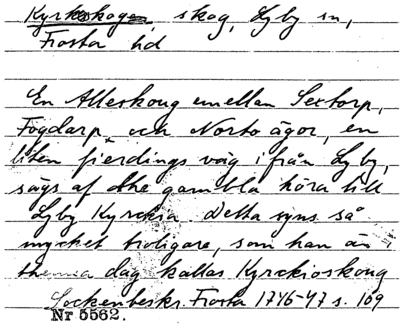 Kyrkskogen, skog, Lyby sn,
Frosta hd
En Alleskoug emellan Sextorp,
Fogdarp och Norto ägor, en
liten fierdings väg ifrån Lyby,
säges af the gambla höra till
Lyby Kyrckia. Detta syns så
mycket troligare, som han än i
thenna dag kallas Kyrckioskoug
Sockenbeskr. Frosta 1746-47 s. 109
Nr 5562.